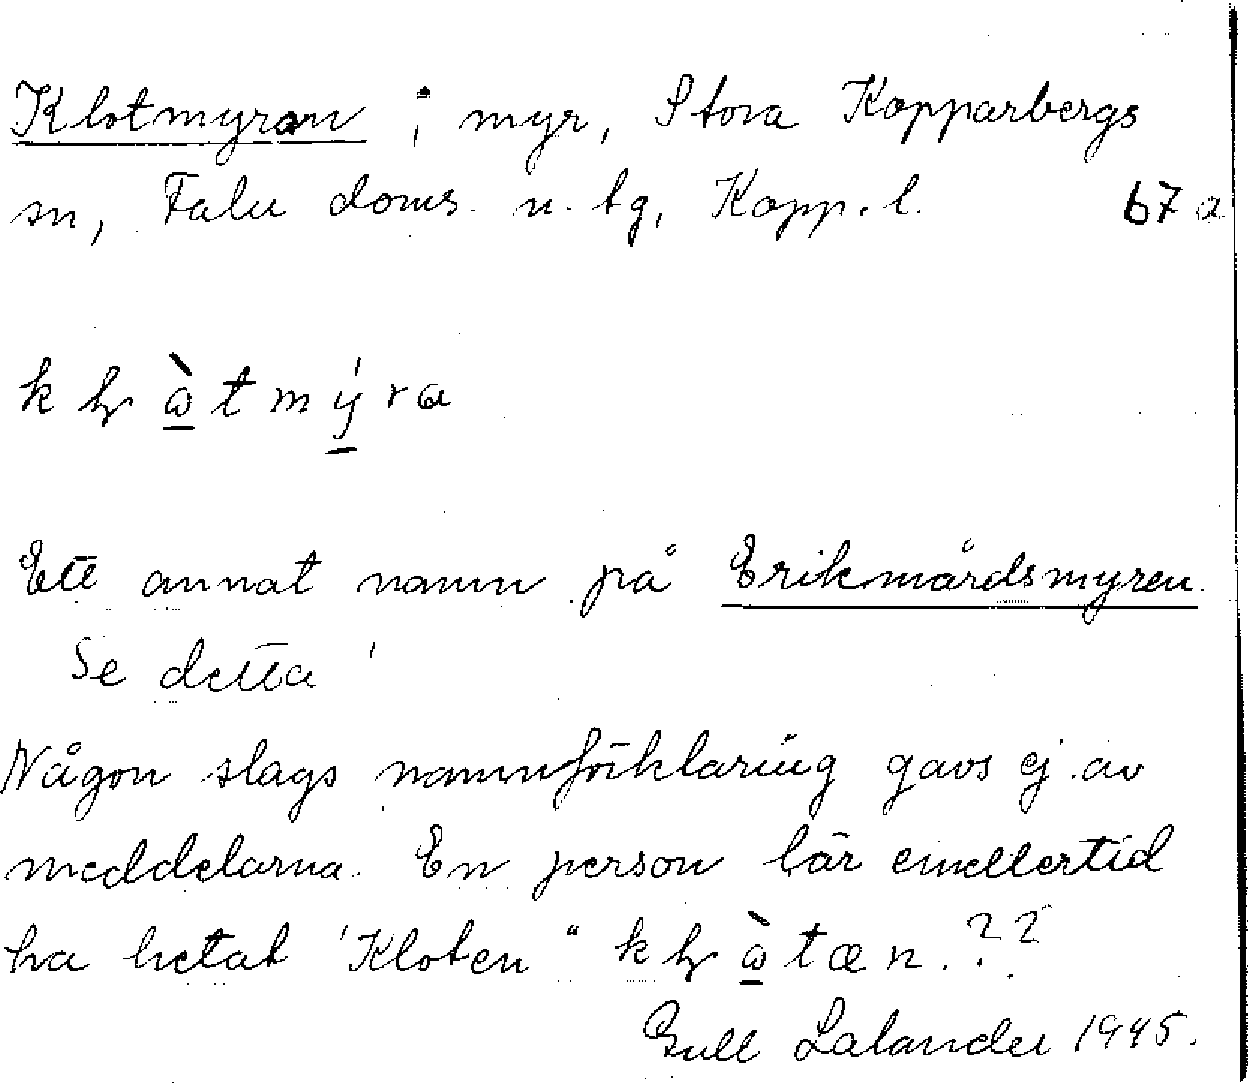 Klotmyran ; myr, Stora Kopparbergs
sn, Falu doms. n. tg, Kopp. l. 67 a
kɭὼtmýra
Ett annat namn på Erikmårdsmyren.
Se detta!
Någon slags namnförklaring gavs ej av
meddelarna. En person lär emellertid
ha hetat "Kloten" kɭὼtæn.??
Gull Lalander 1945.